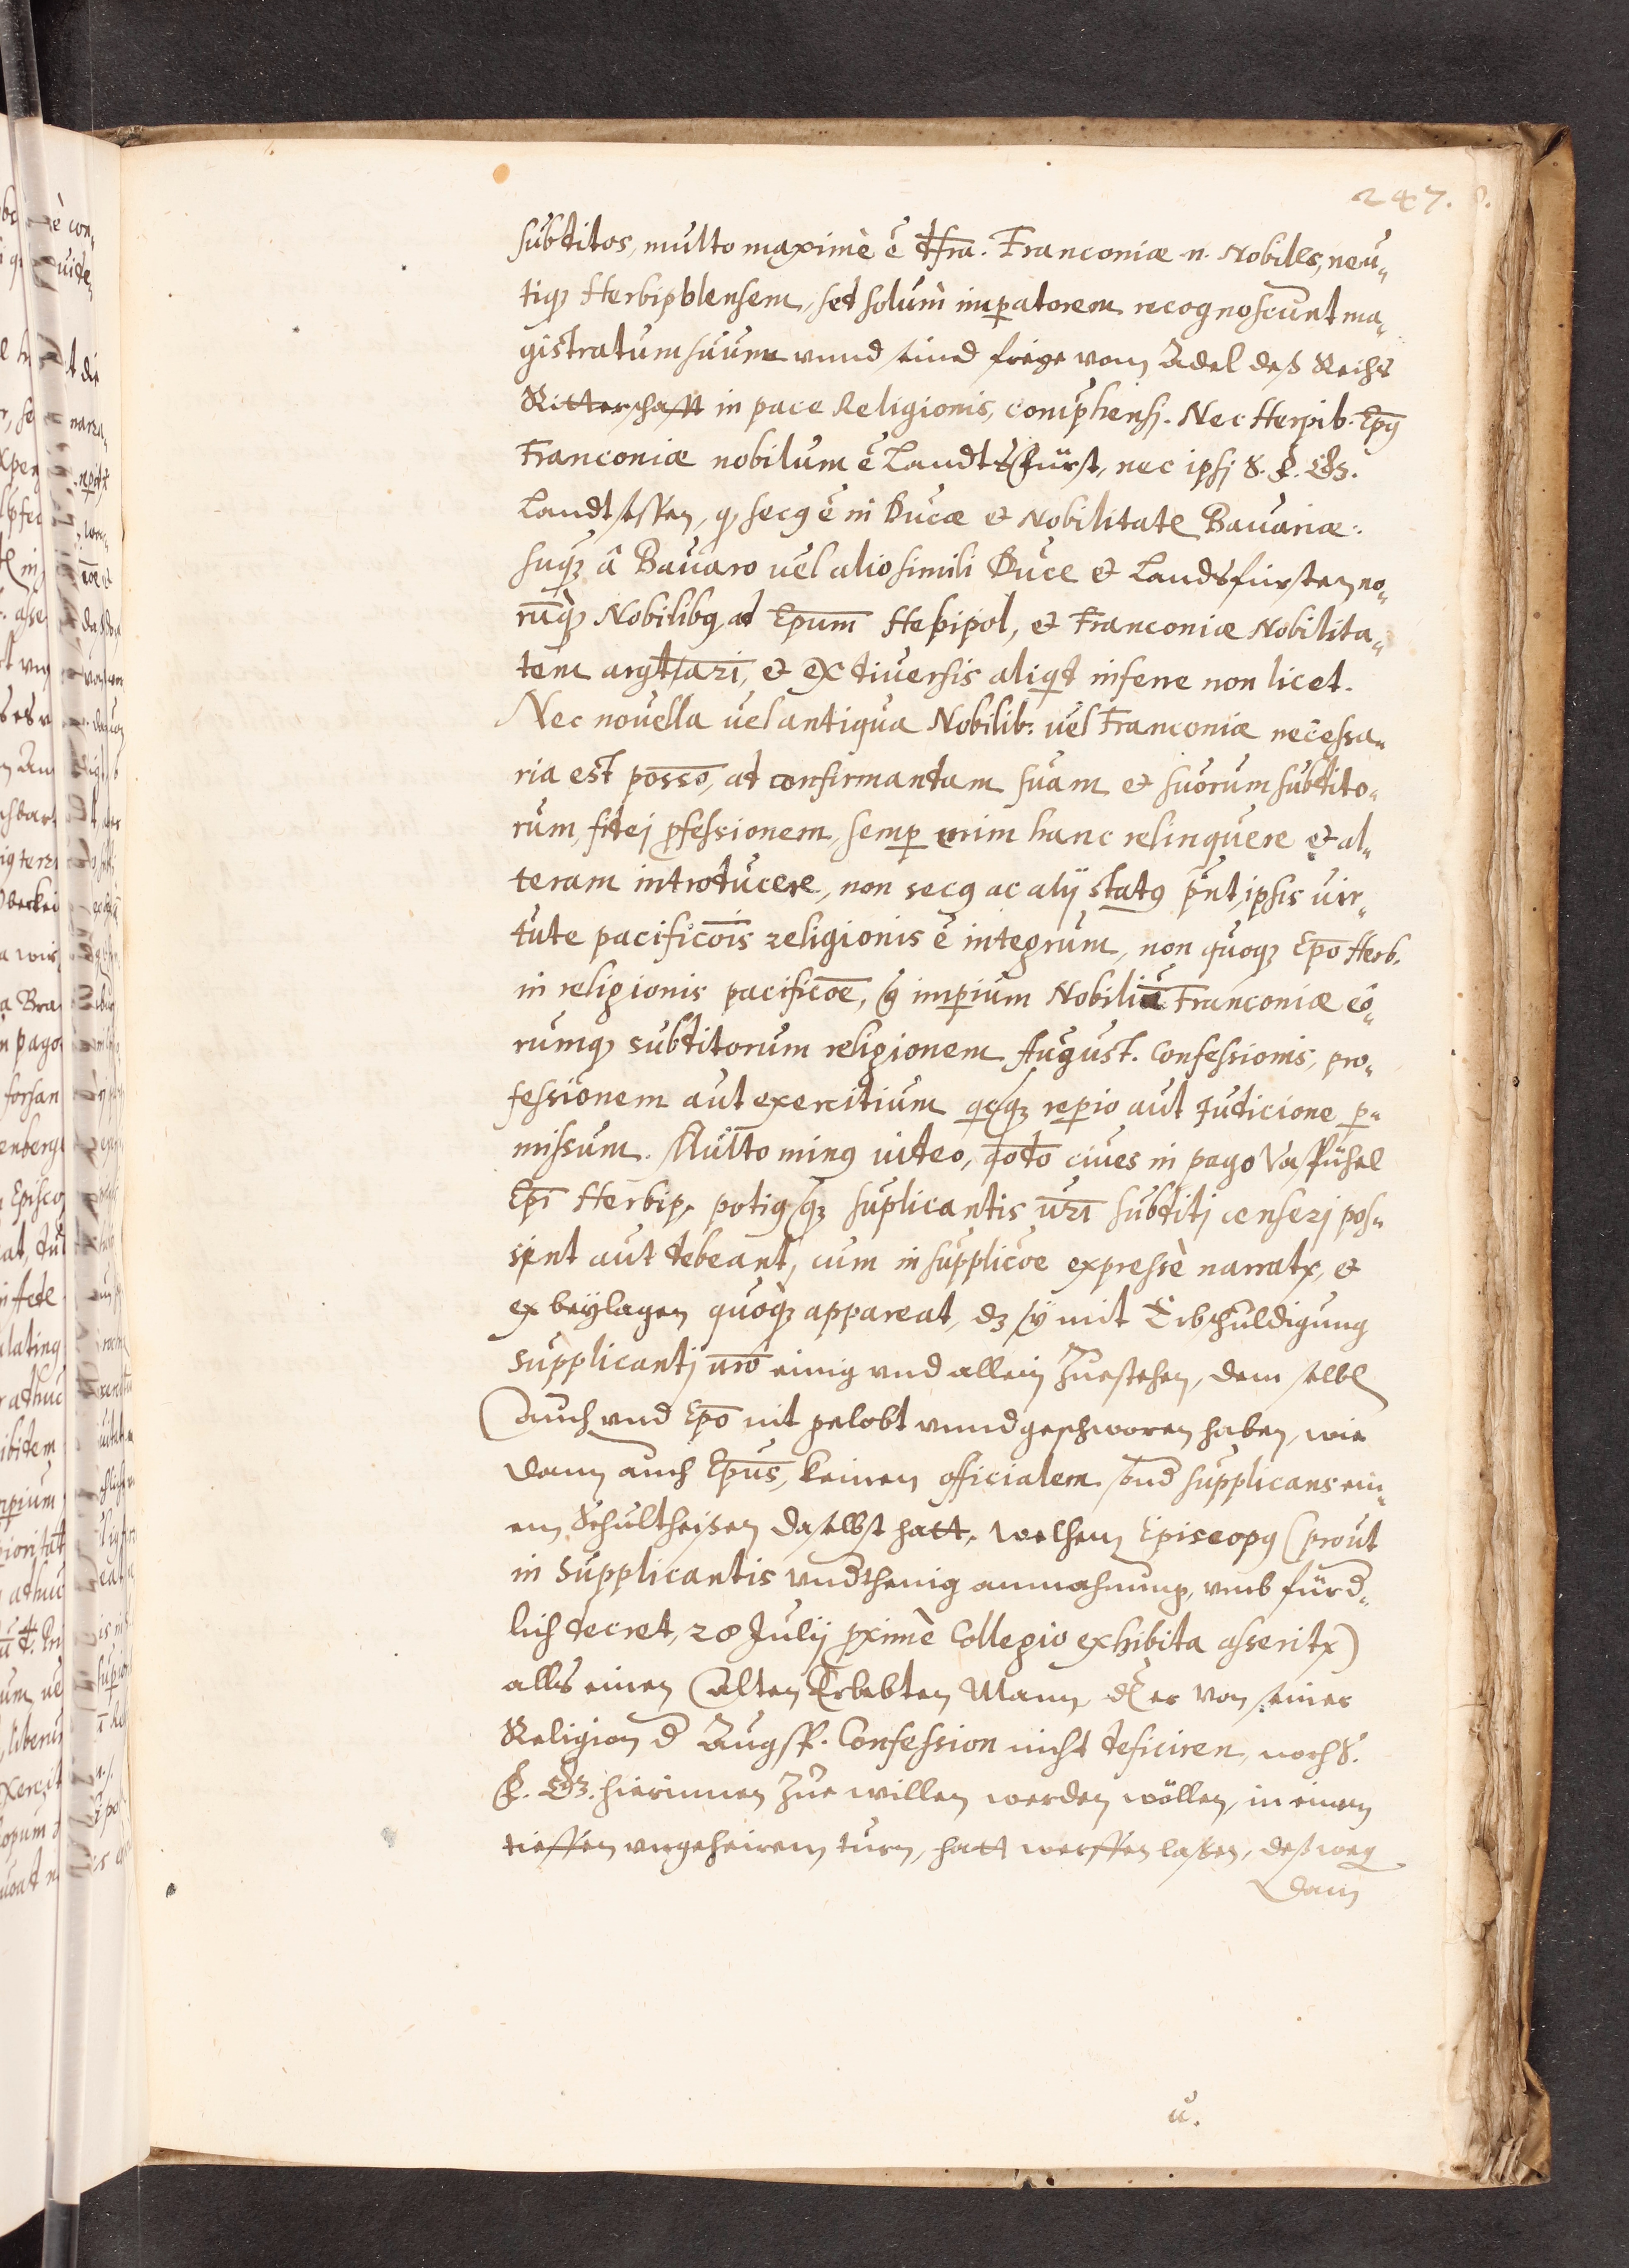 247.
subditos, multo maximè ẽ dfra. Franconiæ n. Nobiles, neu„
tiq́ꝫ Herbipolensem, sed solum imꝑatorem recognoscunt ma„
gistratum suum vnnd seind freye vom Adel deß Reichs
Ritterschafft in pace Religionis, comp̃hensj. Nec Herpib. Ep̃9
Franconiæ nobilum ẽ Landtsfürst, nec ipsj S. F. Gꝫ.
Landtsessen, ꝙ sec9 ẽ in Ducæ et Nobilitate Bavariæ:
suq́ꝫ â Bavaro vel alio simili Duce et Landsfürsten no„
rũq́ꝫ Nobilibꝫ ad Ep̃um Hebipol, et Franconiæ Nobilita„
tem argt̃ari, et ex diversis aliqd inferre non licet.
Nec novella vel antiqua Nobilib: vel Franconiæ necessa„
ria est posso̅, ad confirmandam suam et suorum subdito„
rum, fidej ꝓfessionem, semꝑ enim hanc relinquere et al„
teram introducere, non sec9 ac alÿ stat9 p̃nt, ipsis vir„
tute pacificõis religionis ẽ integrum, non quoqꝫ Ep̃o Herb.
in religionis pacificõe, imꝑium Nobiliũ Franconiæ eo„
rumqꝫ subditorum religionem August. Confessionis, pro„
fessionem aut exercitium reꝑio aut Judicione ꝑ„
missum. Multo min9 video, qõdo cives in pago Vasbühel
Ep̃i Herbip. poti9 qꝫ suplicantis vr̃i subditj censerj pos„
sint aut debeant, cum in supplicõe expressè narratr, et
ex beÿlagen quoqꝫ appareat, dz sÿ mit Erbschuldigung
supplicantj vr̃o einig vnd allein Zuestehen, dem selbē
Auch vnd Ep̃o nit gelobt vnnd geschworen haben, wie
dann auch Ep̃us, keinen officialem, sond supplicans ein„
em Schultheißen daselbst hatt. Welchem Episcop9 (prout
in Supplicantis vndthenig anmahnung, vmb fürd„
lich decret, 28 Julÿ ꝓximè Collegio exhibita asseritr)
alls einen Alten Erlebten Mann, dz er von seiner
Religion d Augsp. Confession nicht deficiren, noch S.
F. Gꝫ. hierinnen Zue willen werden wöllen, in einen
tieffen vngeheiren turn, hatt werffen lassen, deßweg
Dann
u.